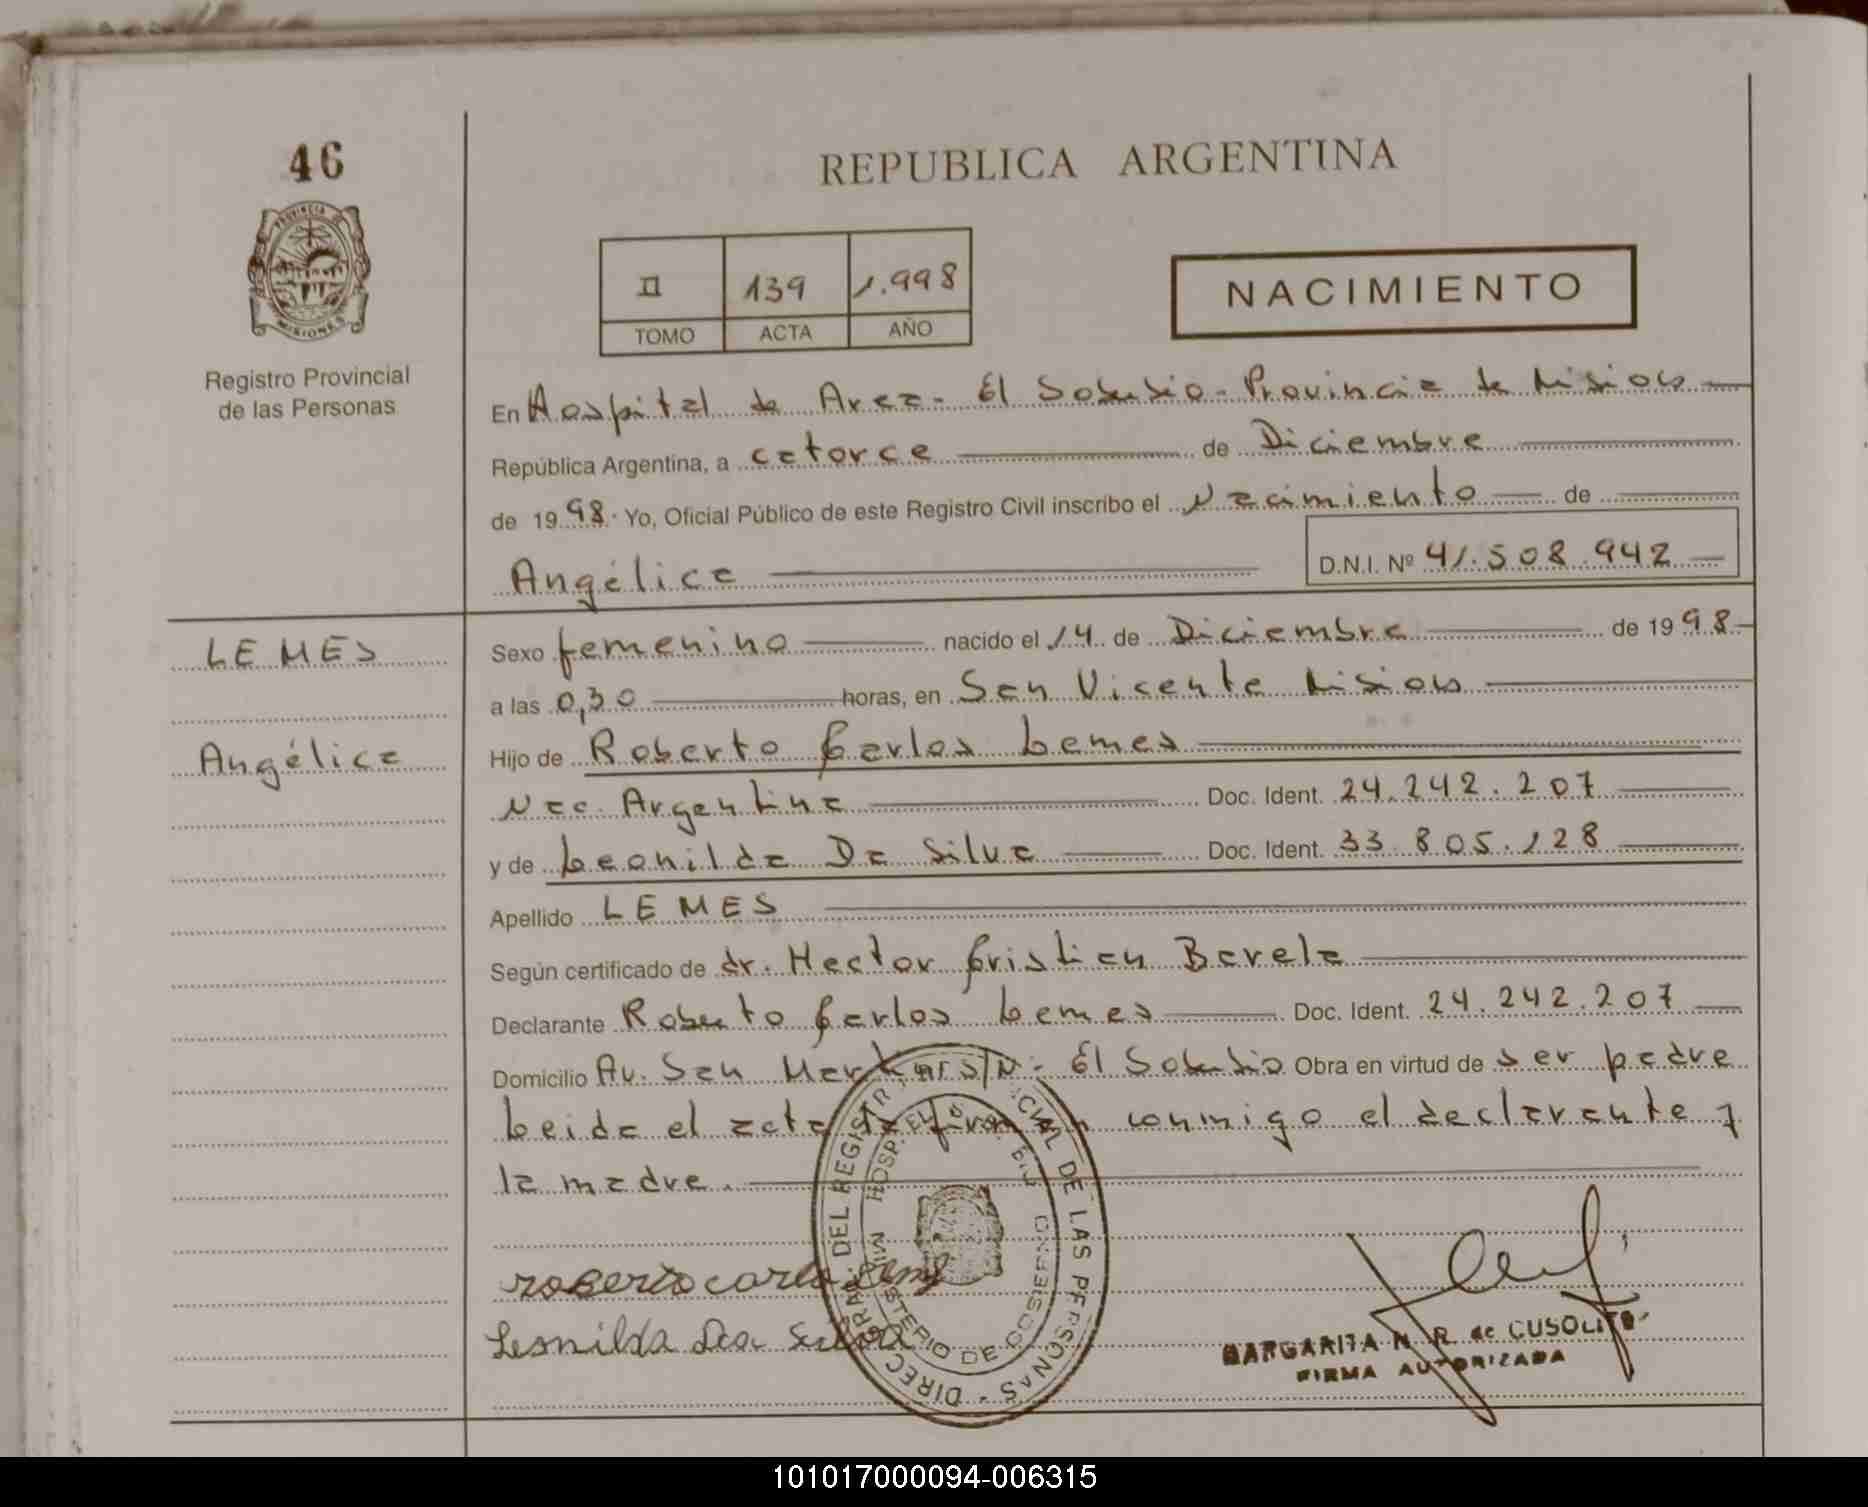 46
REPUBLICA ARGENTINA
PROVINCIA DE
MISIONES
Registro Provincial
de las Personas
II 139 1.998
TOMO ACTA AÑO
NACIMIENTO
En Hospital de Area - El Soberbio - Provincia de Misiones
República Argentina, a catorce de Diciembre
de 1998. Yo, Oficial Público de este Registro Civil inscribo el Nacimiento de
Angélica D.N.I. Nº 41.508.942
LEMES
Angélica
Sexo femenino nacido el 14 de Diciembre de 1998
a las 0,30 horas, en San Vicente Misiones
Hijo de Roberto Carlos Lemes
Nac. Argentina Doc. Ident. 24.242.207
y de Leonilda Da Silva Doc. Ident. 33.805.128
Apellido LEMES
Según certificado de dr. Hector Cristian Barela
Declarante Roberto Carlos Lemes Doc. Ident. 24.242.207
Domicilio Av. San Martín S/N - El Soberbio Obra en virtud de ser padre
Leida el acta la firman conmigo el declarante y
la madre.
roberto carlo Leme
Leonilda Da Silva
MARGARITA N. R. de CUSOLITO
FIRMA AUTORIZADA
DE LAS PERSONAS - DIRECC
MINISTERIO DE GOBIERNO
101017000094-006315